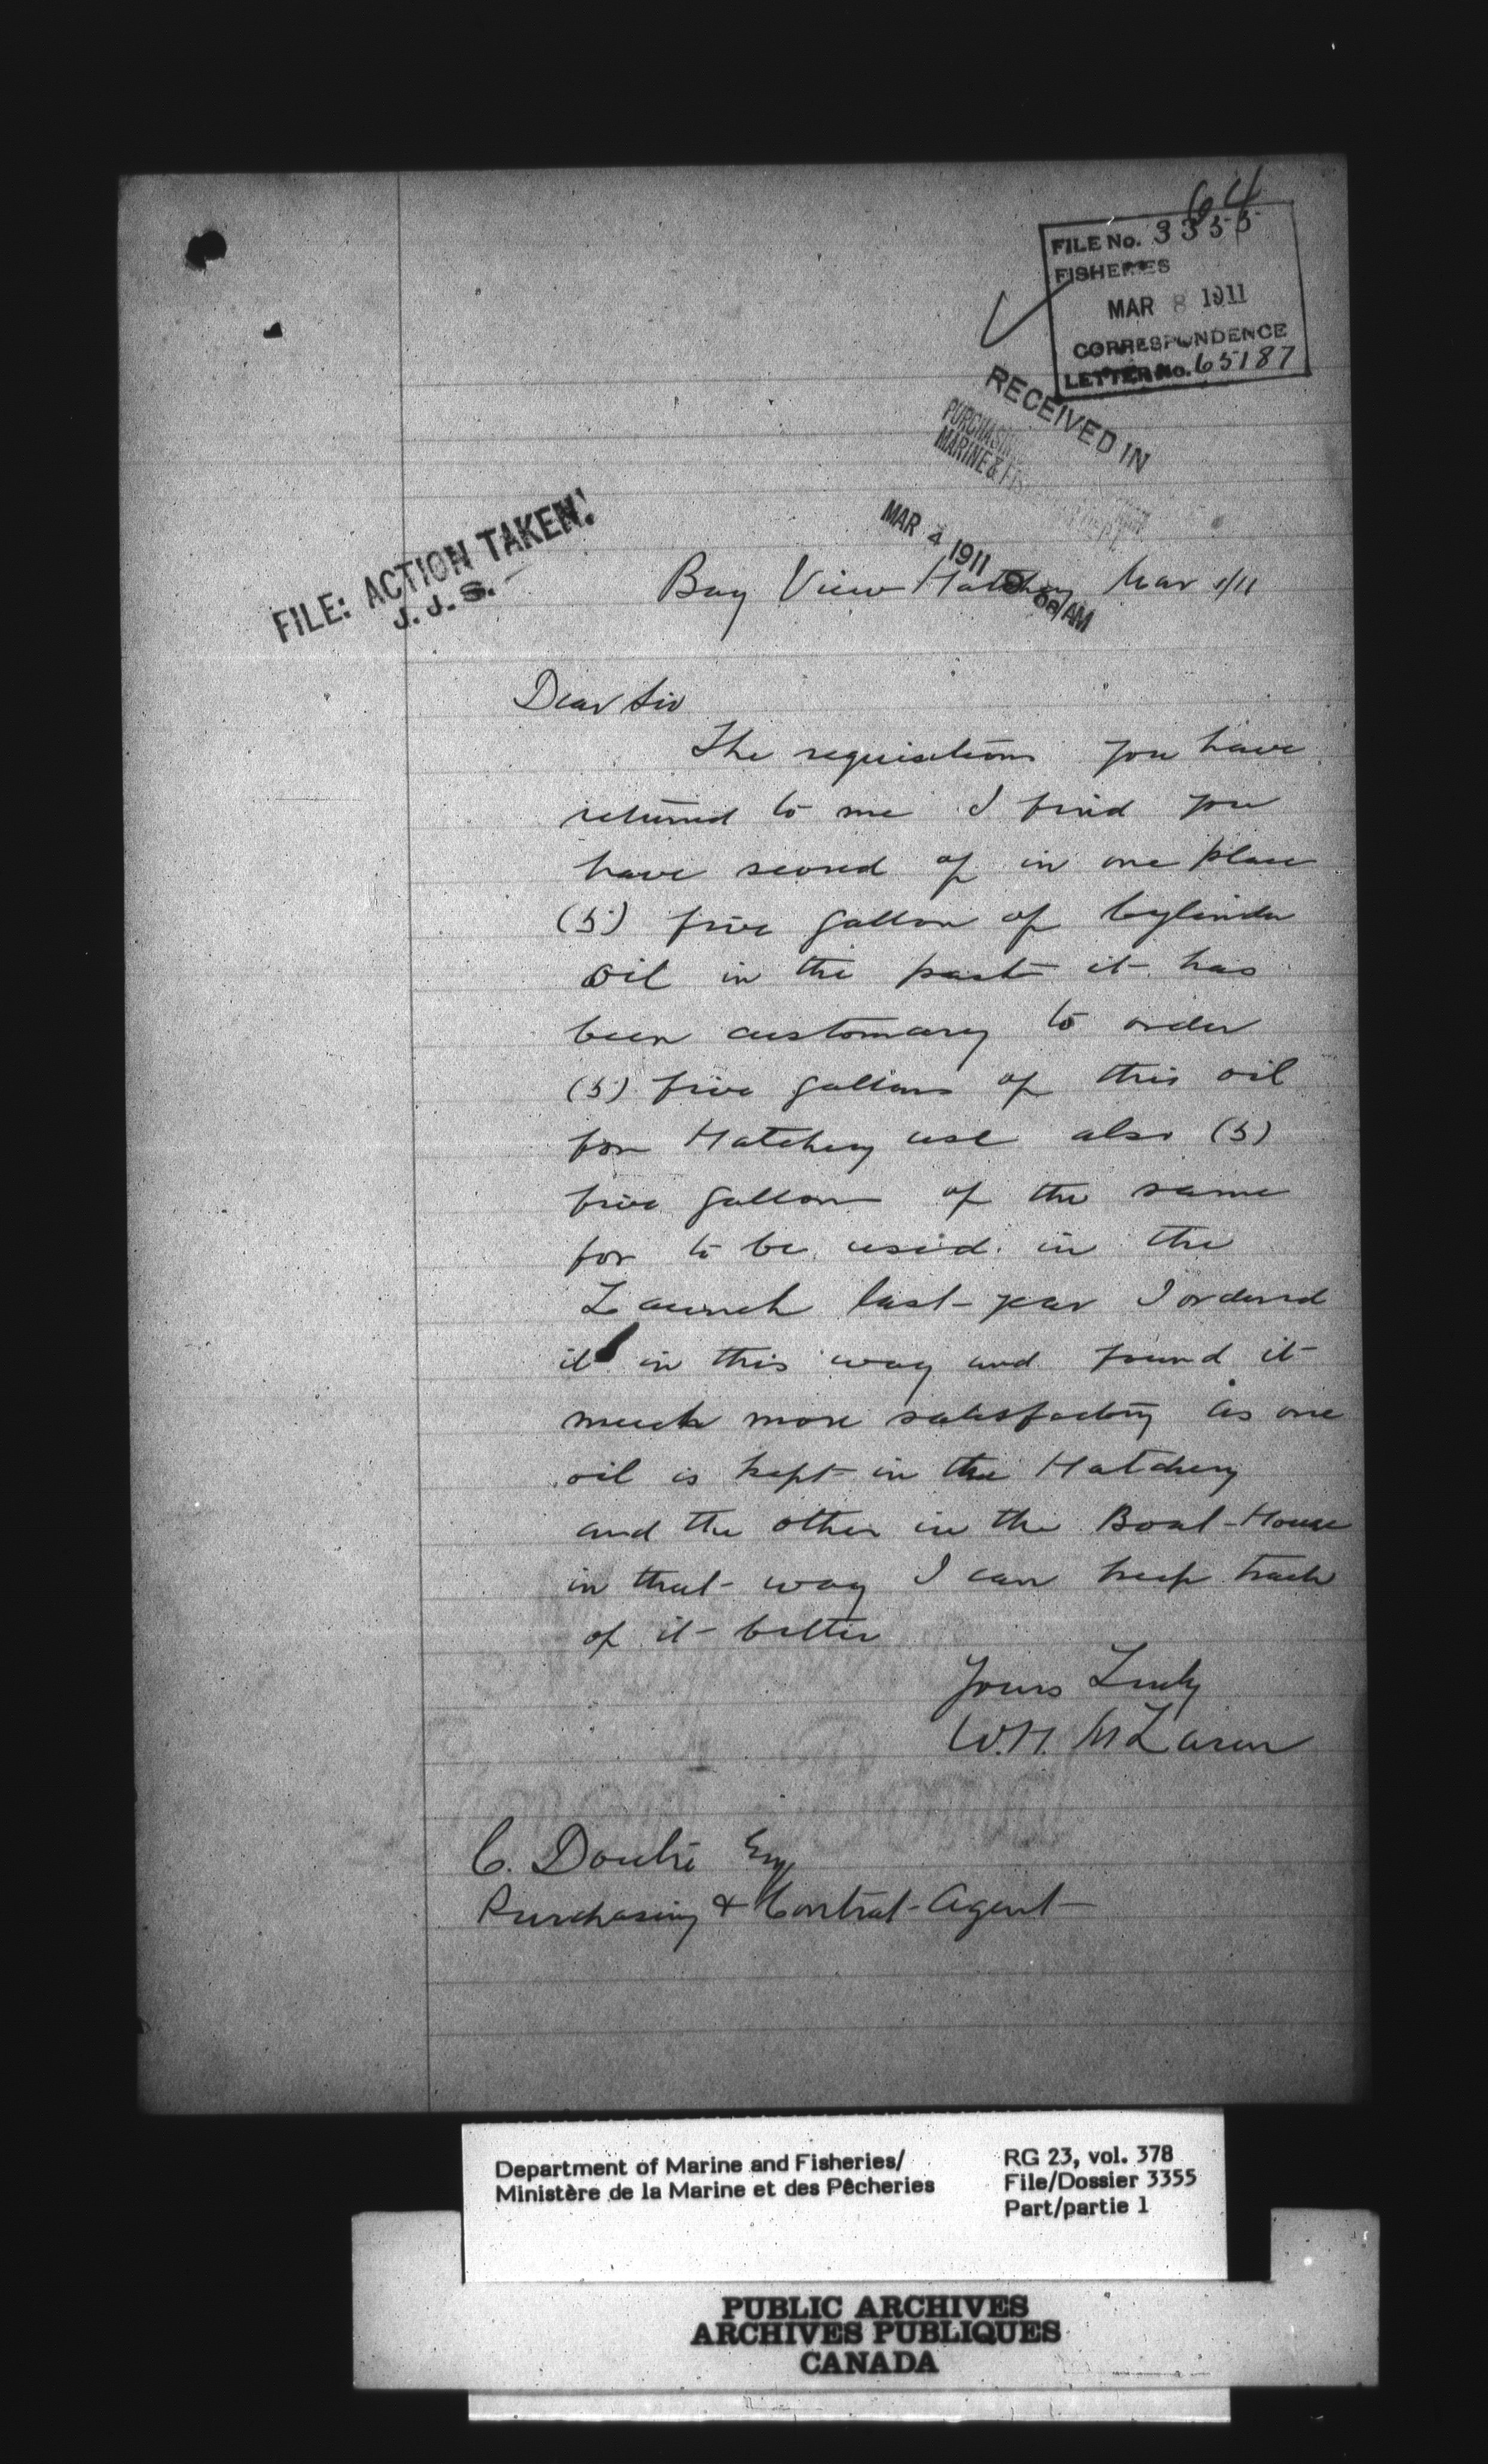 64
FILE No. 3355
FISHERIES
MAR 8 1911
CORRESPONDENCE
LETTER No. 65187
RECEIVED IN
PURCHASING
MARINE & FIS
MAR 4 1911 AM
FILE: ACTION TAKEN.
J. J. S.
Bay View Hatchery Mar 1/11
Dear Sir
The requisitions you have
returned to me I find you
have scored of in one place
(5) five gallon of Cylinder
Oil in the past it has
been customary to order
(5) five gallons of this oil
for Hatchery use also (5)
five gallons of the same
for to be used in the
Launch last year I ordered
it in this way and found it
much more satisfactory as one
oil is kept in the Hatchery
and the other in the Boat-House
in that way I can keep track
of it better
Yours Truly
W.H. McLaren
C. Doutre Esq
Purchasing & Contract Agent
Department of Marine and Fisheries/
Ministère de la Marine et des Pêcheries
RG 23, vol. 378
File/Dossier 3355
Part/partie 1
PUBLIC ARCHIVES
ARCHIVES PUBLIQUES
CANADA